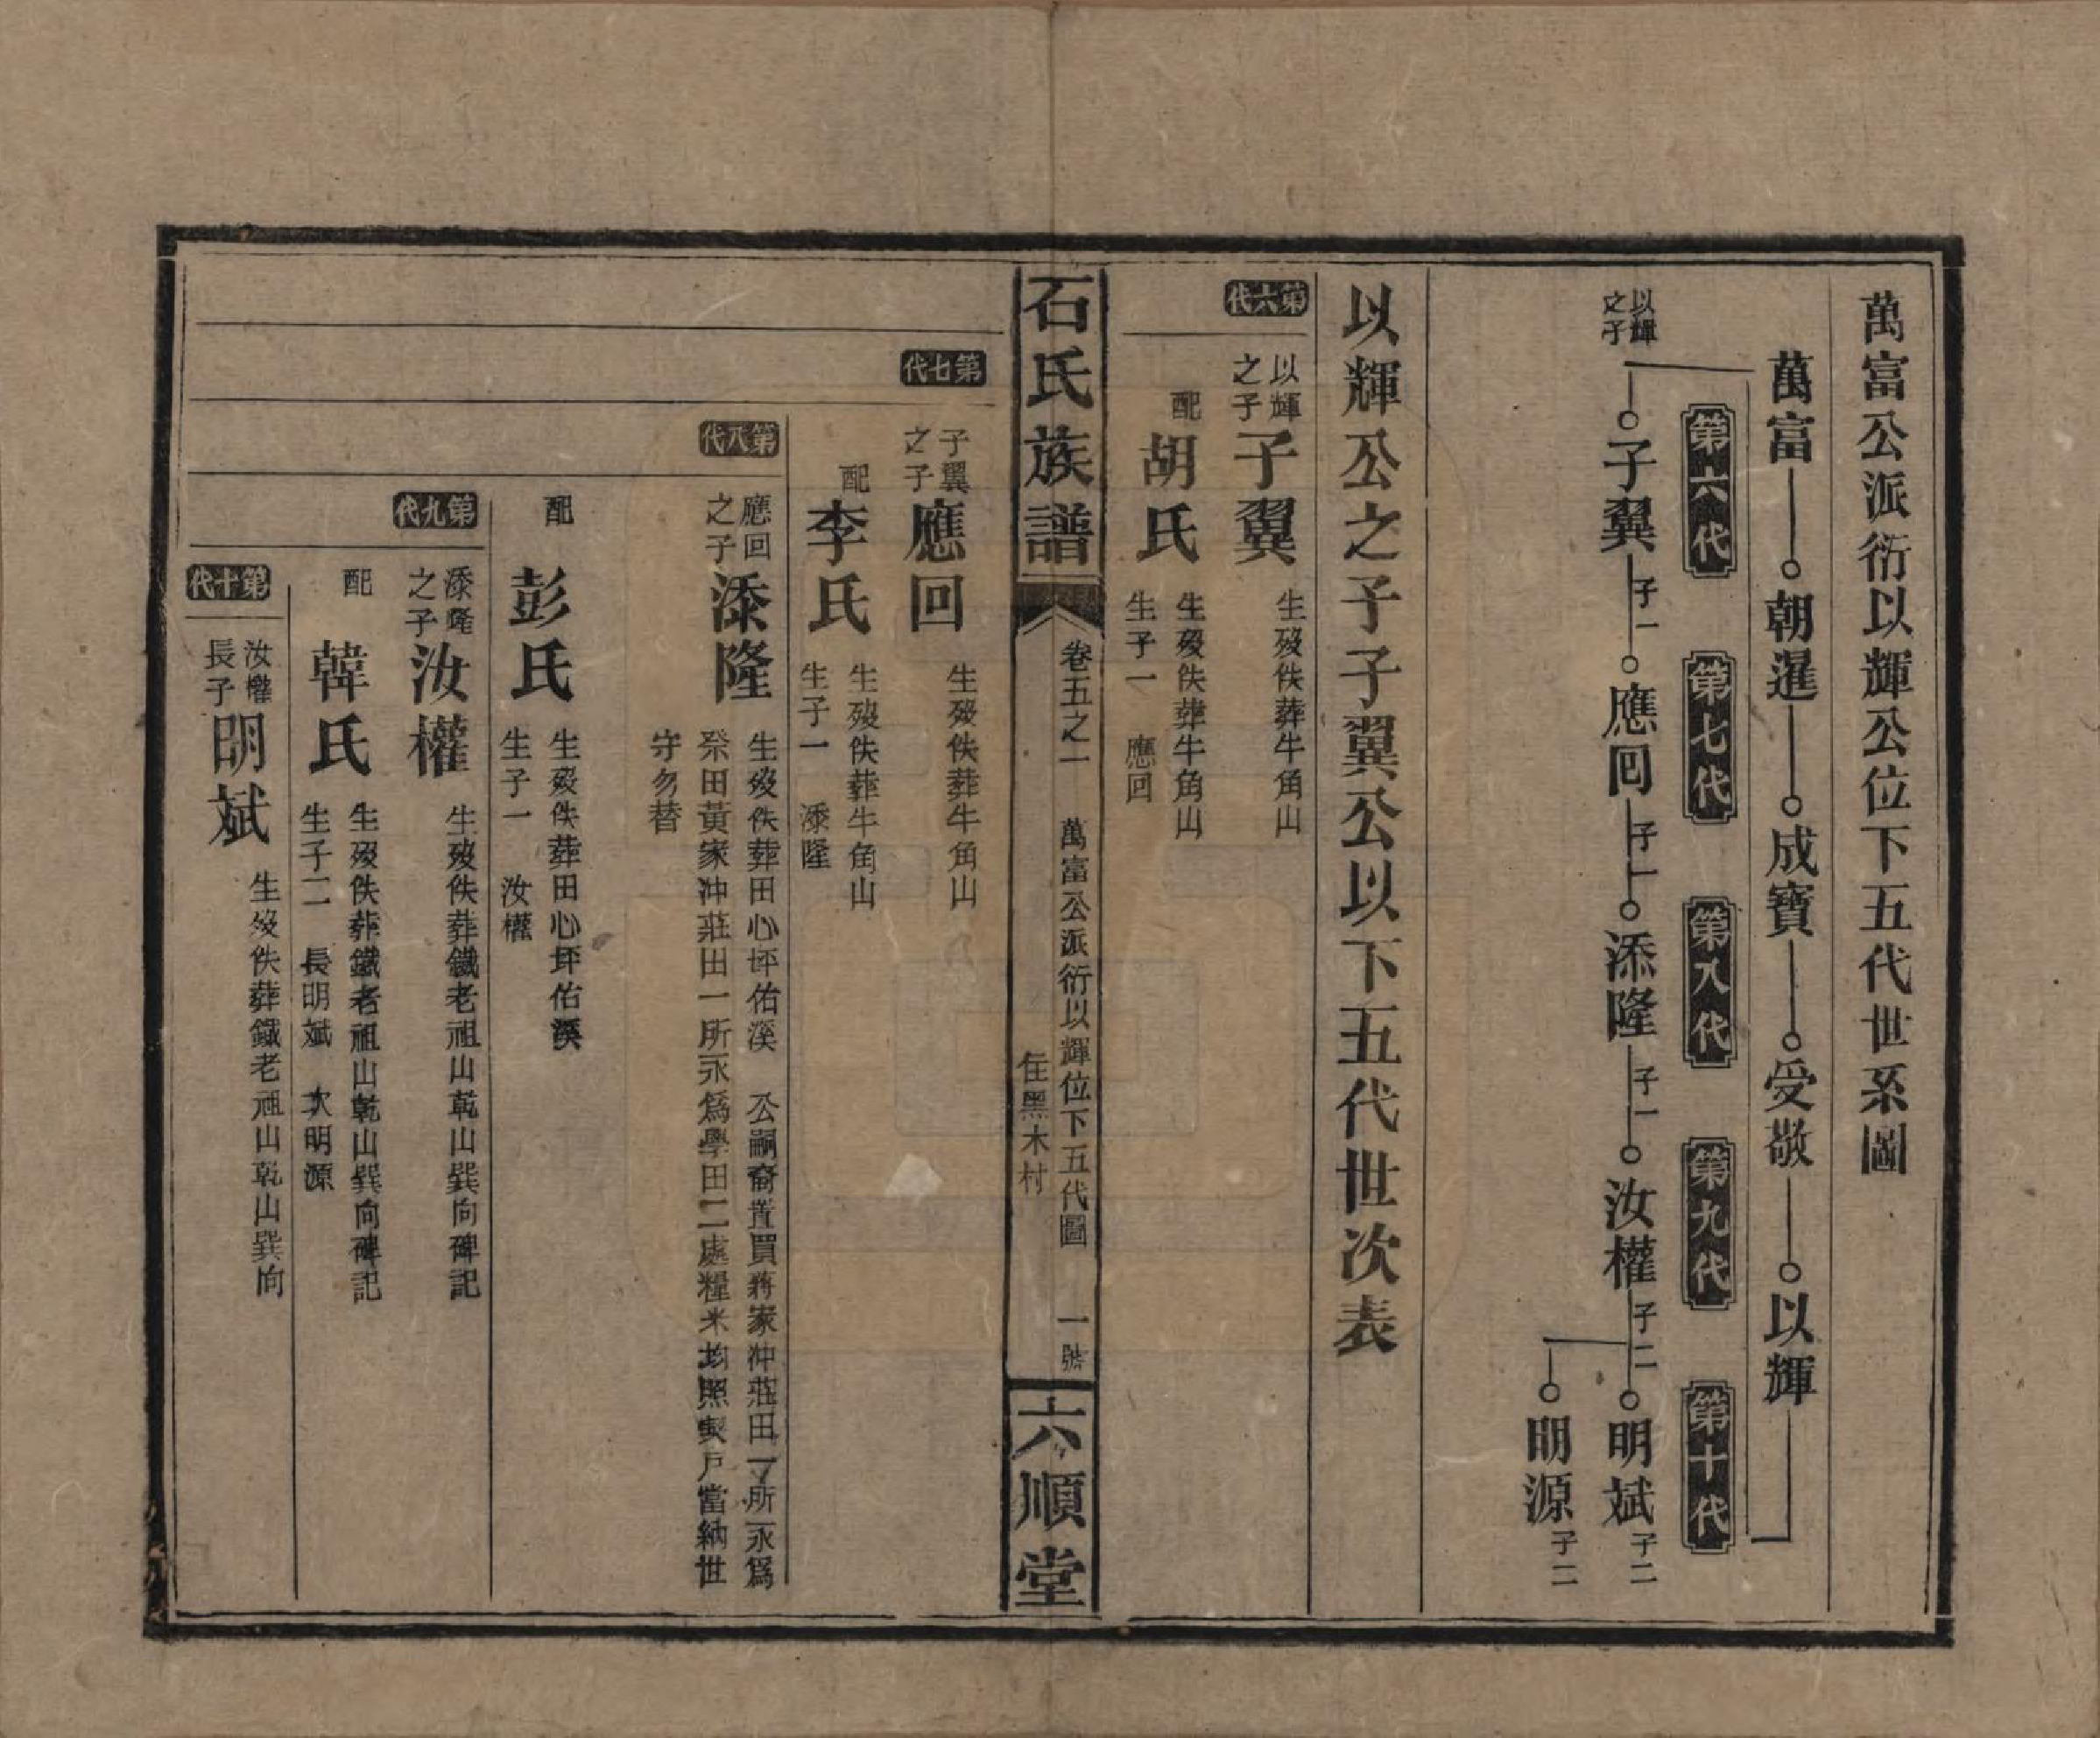 萬富公派衍以輝公位下五代世系圖
萬富 朝暹 成寶 受敬 以輝
第六代 第七代 第八代 第九代 第十代
以輝之子 子翼 子一 應回 子一 添隆 子一 汝權 子二 明斌 子二
明源 子二
以輝公之子子翼公以下五代世次表
第六代
以輝之子 子翼 生歿佚葬牛角山
配 胡氏 生歿佚葬牛角山
生子一 應回
石氏族譜 卷五之一 萬富公派衍以輝位下五代圖 一號 六順堂
住黑木村
第七代
子翼之子 應回 生歿佚葬牛角山
配 李氏 生歿佚葬牛角山
生子一 添隆
第八代
應回之子 添隆 生歿佚葬田心坪佑溪 公嗣裔置買蔣家冲莊田一所永爲
祭田黃家冲莊田一所永爲學田二處糧米均照契戶當納世
守勿替
配 彭氏 生歿佚葬田心坪佑溪
生子一 汝權
第九代
添隆之子 汝權 生歿佚葬鐵老祖山乾山巽向碑記
配 韓氏 生歿佚葬鐵老祖山乾山巽向碑記
生子二 長明斌 次明源
第十代
汝權長子 明斌 生歿佚葬鐵老祖山乾山巽向